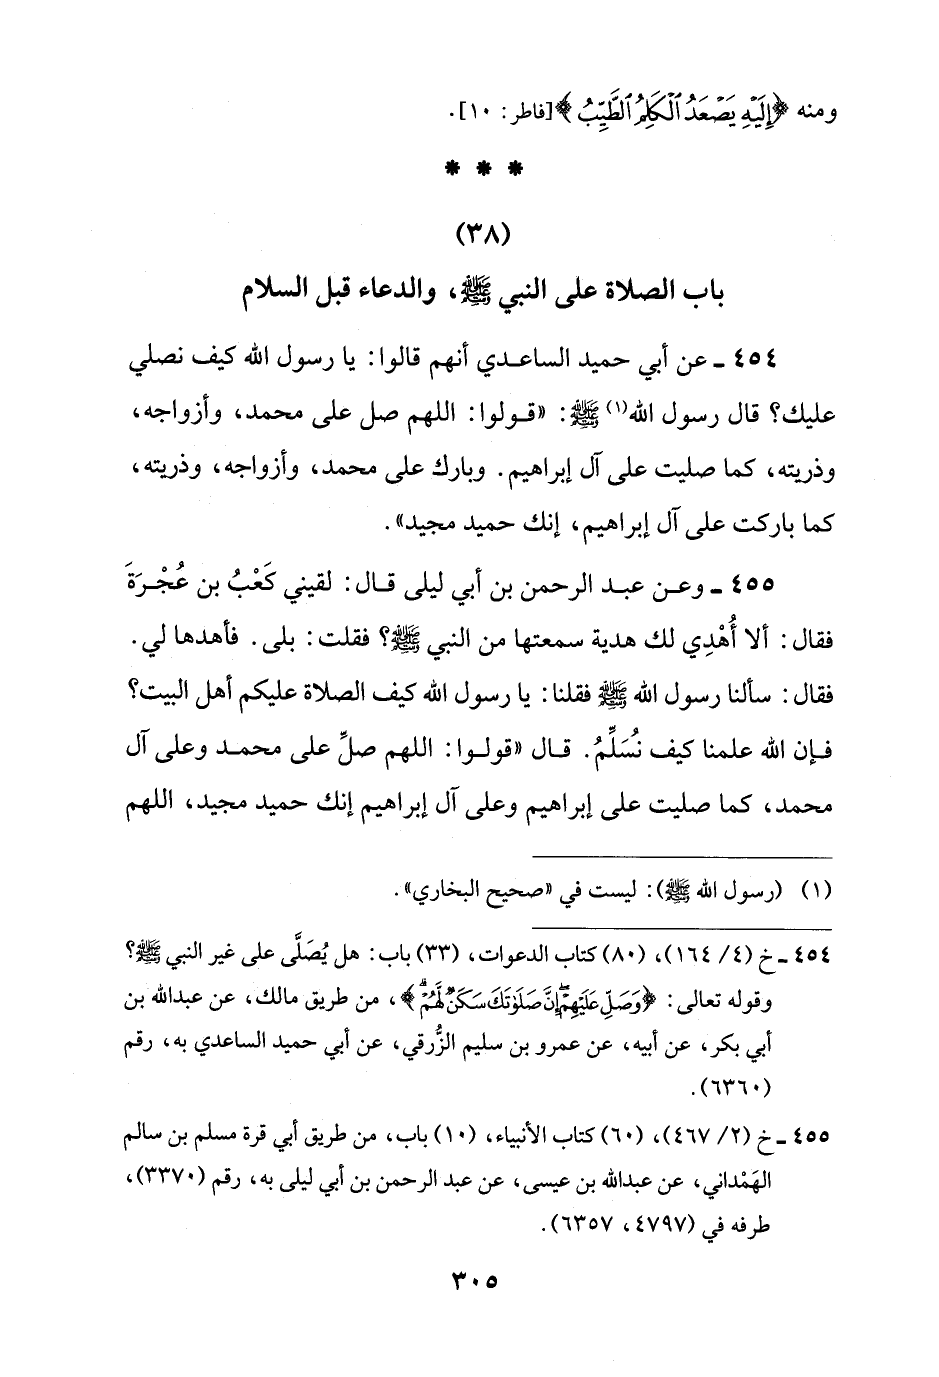 ومنه ﴿إِلَيْهِ يَصْعَدُ ٱلْكَلِمُ ٱلطَّيِّبُ﴾ [فاطر: ١٠].
* * *
(٣٨)
باب الصلاة على النبي ﷺ، والدعاء قبل السلام
٤٥٤ ـ عن أبي حميد الساعدي أنهم قالوا: يا رسول الله كيف نصلي
عليك؟ قال رسول الله(١) ﷺ: «قولوا: اللهم صل على محمد، وأزواجه،
وذريته، كما صليت على آل إبراهيم. وبارك على محمد، وأزواجه، وذريته،
كما باركت على آل إبراهيم، إنك حميد مجيد».
٤٥٥ ـ وعن عبد الرحمن بن أبي ليلى قال: لقيني كَعْبُ بن عُجْرَةَ
فقال: ألا أُهْدِي لك هدية سمعتها من النبي ﷺ؟ فقلت: بلى. فأهدها لي.
فقال: سألنا رسول الله ﷺ فقلنا: يا رسول الله كيف الصلاة عليكم أهل البيت؟
فإن الله علمنا كيف نُسَلِّمُ. قال «قولوا: اللهم صلِّ على محمد وعلى آل
محمد، كما صليت على إبراهيم وعلى آل إبراهيم إنك حميد مجيد، اللهم
(١) (رسول الله ﷺ): ليست في «صحيح البخاري».
٤٥٤ ـ خ (٤/ ١٦٤)، (٨٠) كتاب الدعوات، (٣٣) باب: هل يُصَلَّى على غير النبي ﷺ؟
وقوله تعالى: ﴿وَصَلِّ عَلَيْهِمْ إِنَّ صَلَوٰتَكَ سَكَنٌ لَّهُمْ﴾، من طريق مالك، عن عبدالله بن
أبي بكر، عن أبيه، عن عمرو بن سليم الزُّرقي، عن أبي حميد الساعدي به، رقم
(٦٣٦٠).
٤٥٥ ـ خ (٢/ ٤٦٧)، (٦٠) كتاب الأنبياء، (١٠) باب، من طريق أبي قرة مسلم بن سالم
الهَمْداني، عن عبدالله بن عيسى، عن عبد الرحمن بن أبي ليلى به، رقم (٣٣٧٠)،
طرفه في (٤٧٩٧، ٦٣٥٧).
٣٠٥